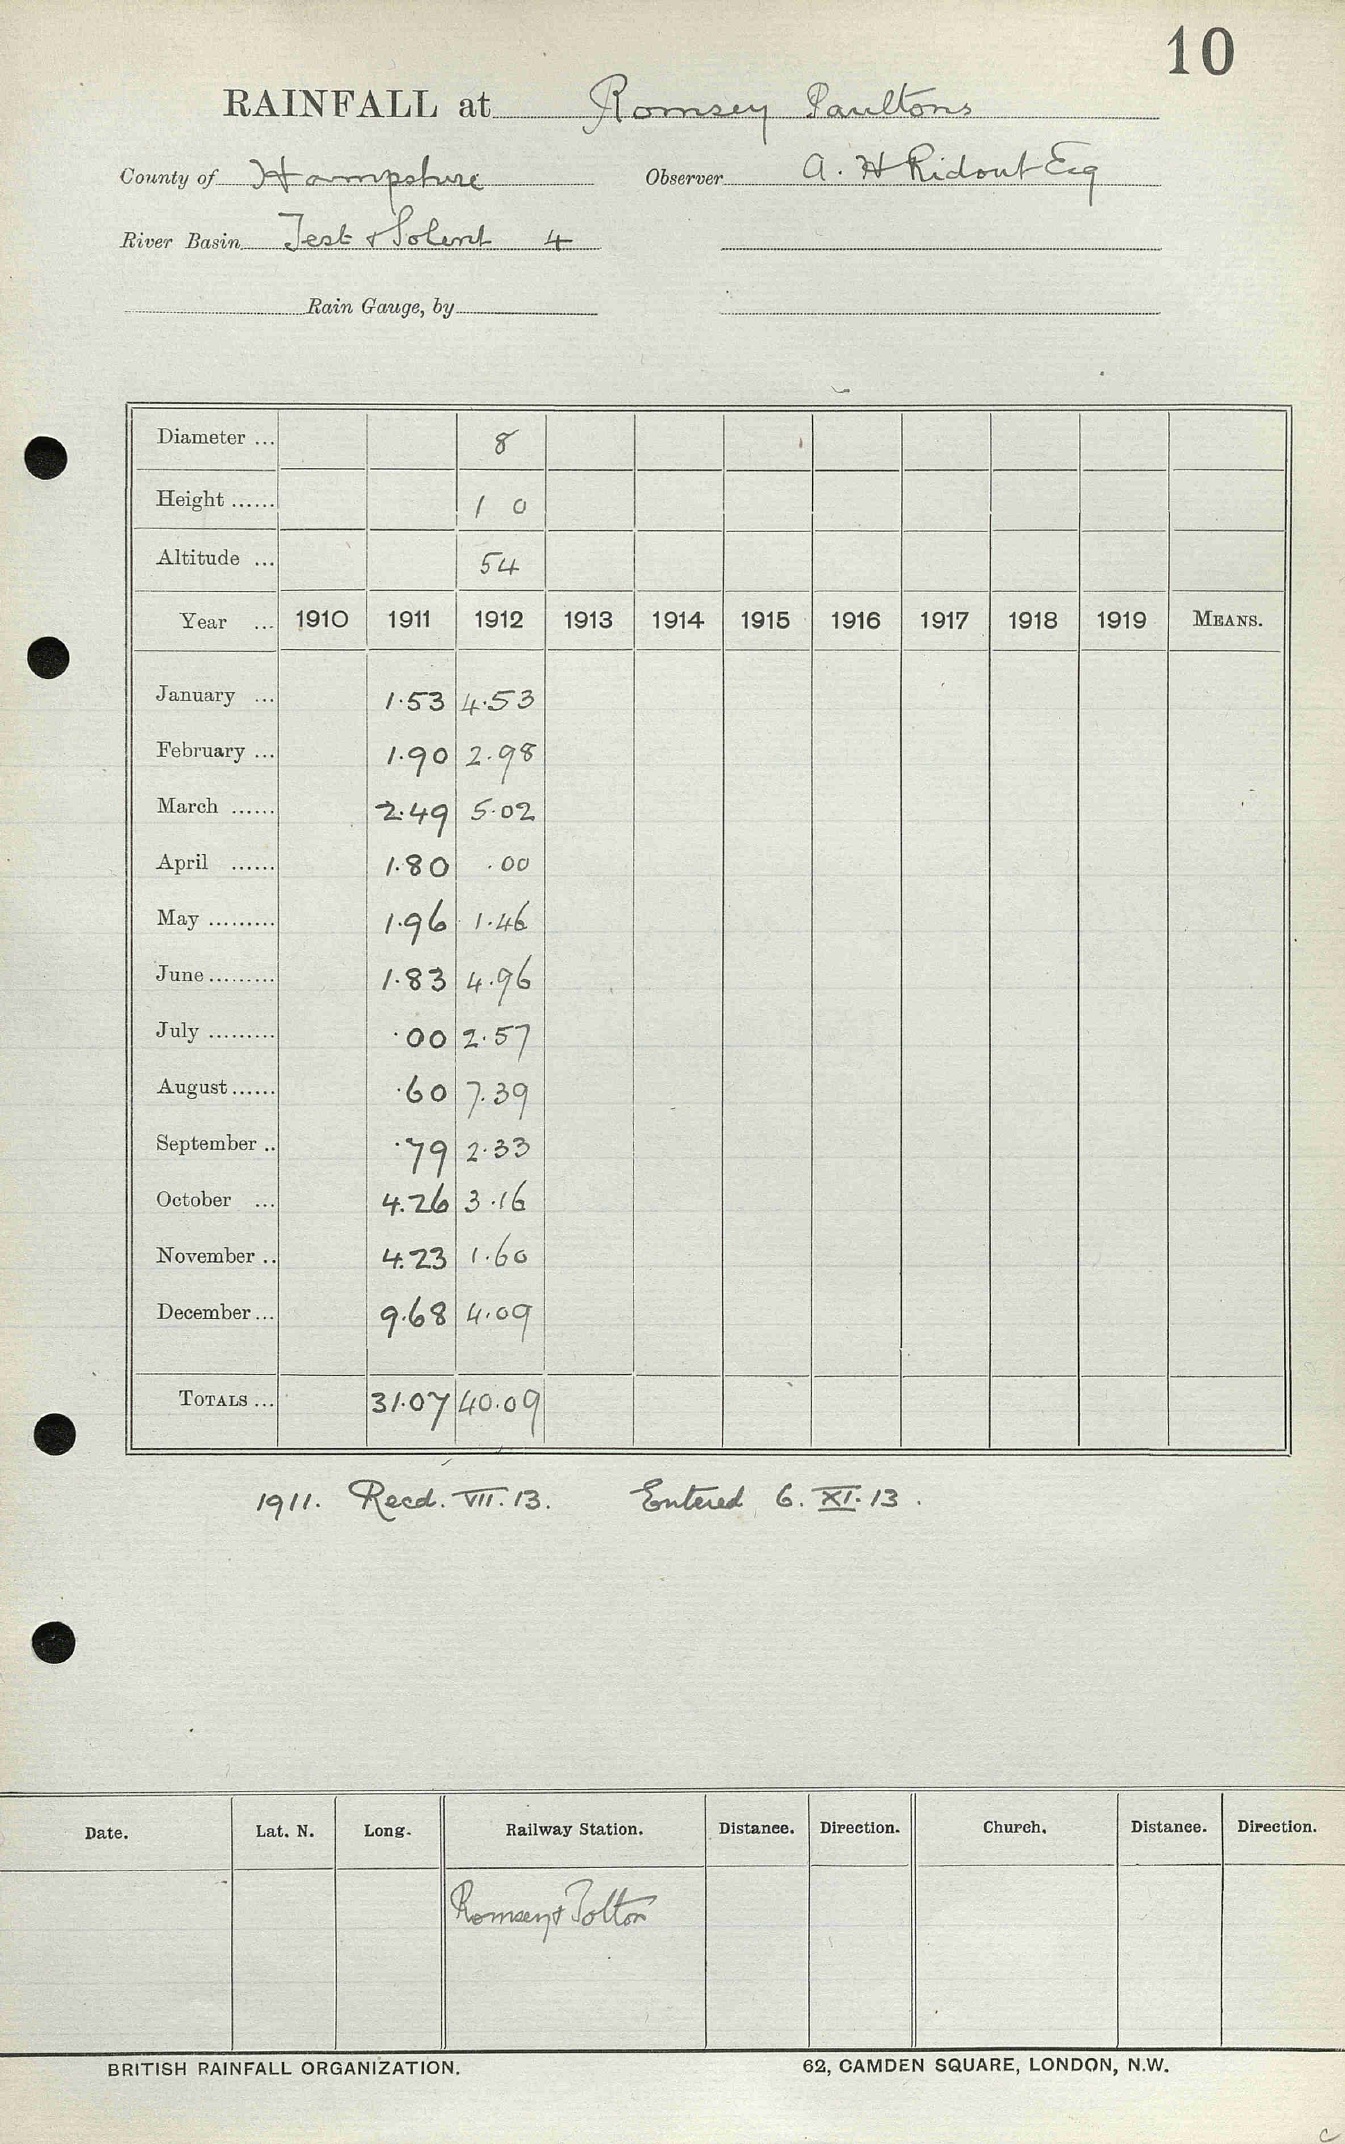 10
RAINFALL at Romsey Paultons
County of Hampshire Observer A. H Ridout Esq
River Basin Test & Solent 4
Rain Gauge, by
Diameter ... 8
Height ...... 1 0
Altitude ... 54
Year ... 1910 1911 1912 1913 1914 1915 1916 1917 1918 1919 MEANS.
January ... 1.53 4.53
February ... 1.90 2.98
March ...... 2.49 5.02
April ...... 1.80 .00
May ......... 1.96 1.46
June ......... 1.83 4.96
July ......... .00 2.57
August ...... .60 7.39
September .. .79 2.33
October ... 4.26 3.16
November .. 4.23 1.60
December ... 9.68 4.09
TOTALS ... 31.07 40.09
1911. Recd. VII. 13. Entered 6. XI. 13.
Date. Lat. N. Long. Railway Station. Distance. Direction. Church. Distance. Direction.
Romsey & Totton
BRITISH RAINFALL ORGANIZATION. 62, CAMDEN SQUARE, LONDON, N.W.
c